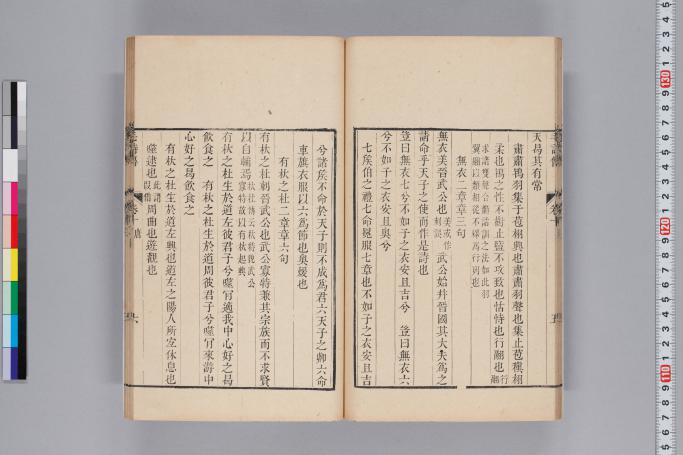 天曷其有常
肅肅鴇羽集于苞栩興也肅肅羽聲也集止苞稹栩
柔也鴇之性不樹止盬不攻致也怙恃也行翮也
無衣二章章三句
無衣美晉武公也武公始并晉國其大夫爲之
請命乎天子之使而作是詩也
豈曰無衣七兮不如子之衣安且吉兮 豈曰無衣六
兮不如子之衣安且奧兮
七矦伯之禮七命冕服七章也不如子之衣安且吉
兮諸矦不命於天子則不成爲君六天子之卿六命
車旗衣服以六爲節也奧煖也
有杕之杜二章章六句
有杕之杜刺晉武公也武公寡特兼其宗族而不求賢
以自輔焉
有杕之杜生於道左彼君子兮噬肎適我中心好之曷
飲食之 有杕之杜生於道周彼君子兮噬肎來游中
心好之曷飲食之
有杕之杜生於道左興也道左之陽人所宜休息也
噬逮也周曲也遊觀也